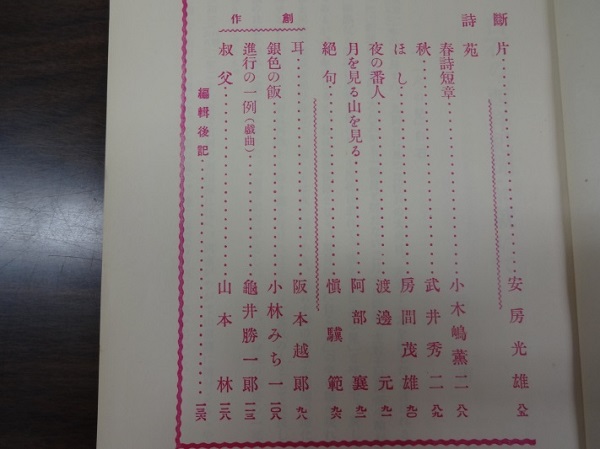 斷片 安房光雄 八五
詩苑
春詩短章 小木嶋薫二 八八
秋 武井秀二 八九
ほし 房間茂雄 九〇
夜の番人 渡邊元 九一
月を見る山を見る 阿部襄 九二
絕句 愼驥範 九六
創作
耳 阪本越郎 九八
銀色の飯 小林みち一 一〇八
進行の一例(戯曲) 龜井勝一郎 一一三
叔父 山本林 一二八
編輯後記 一三六